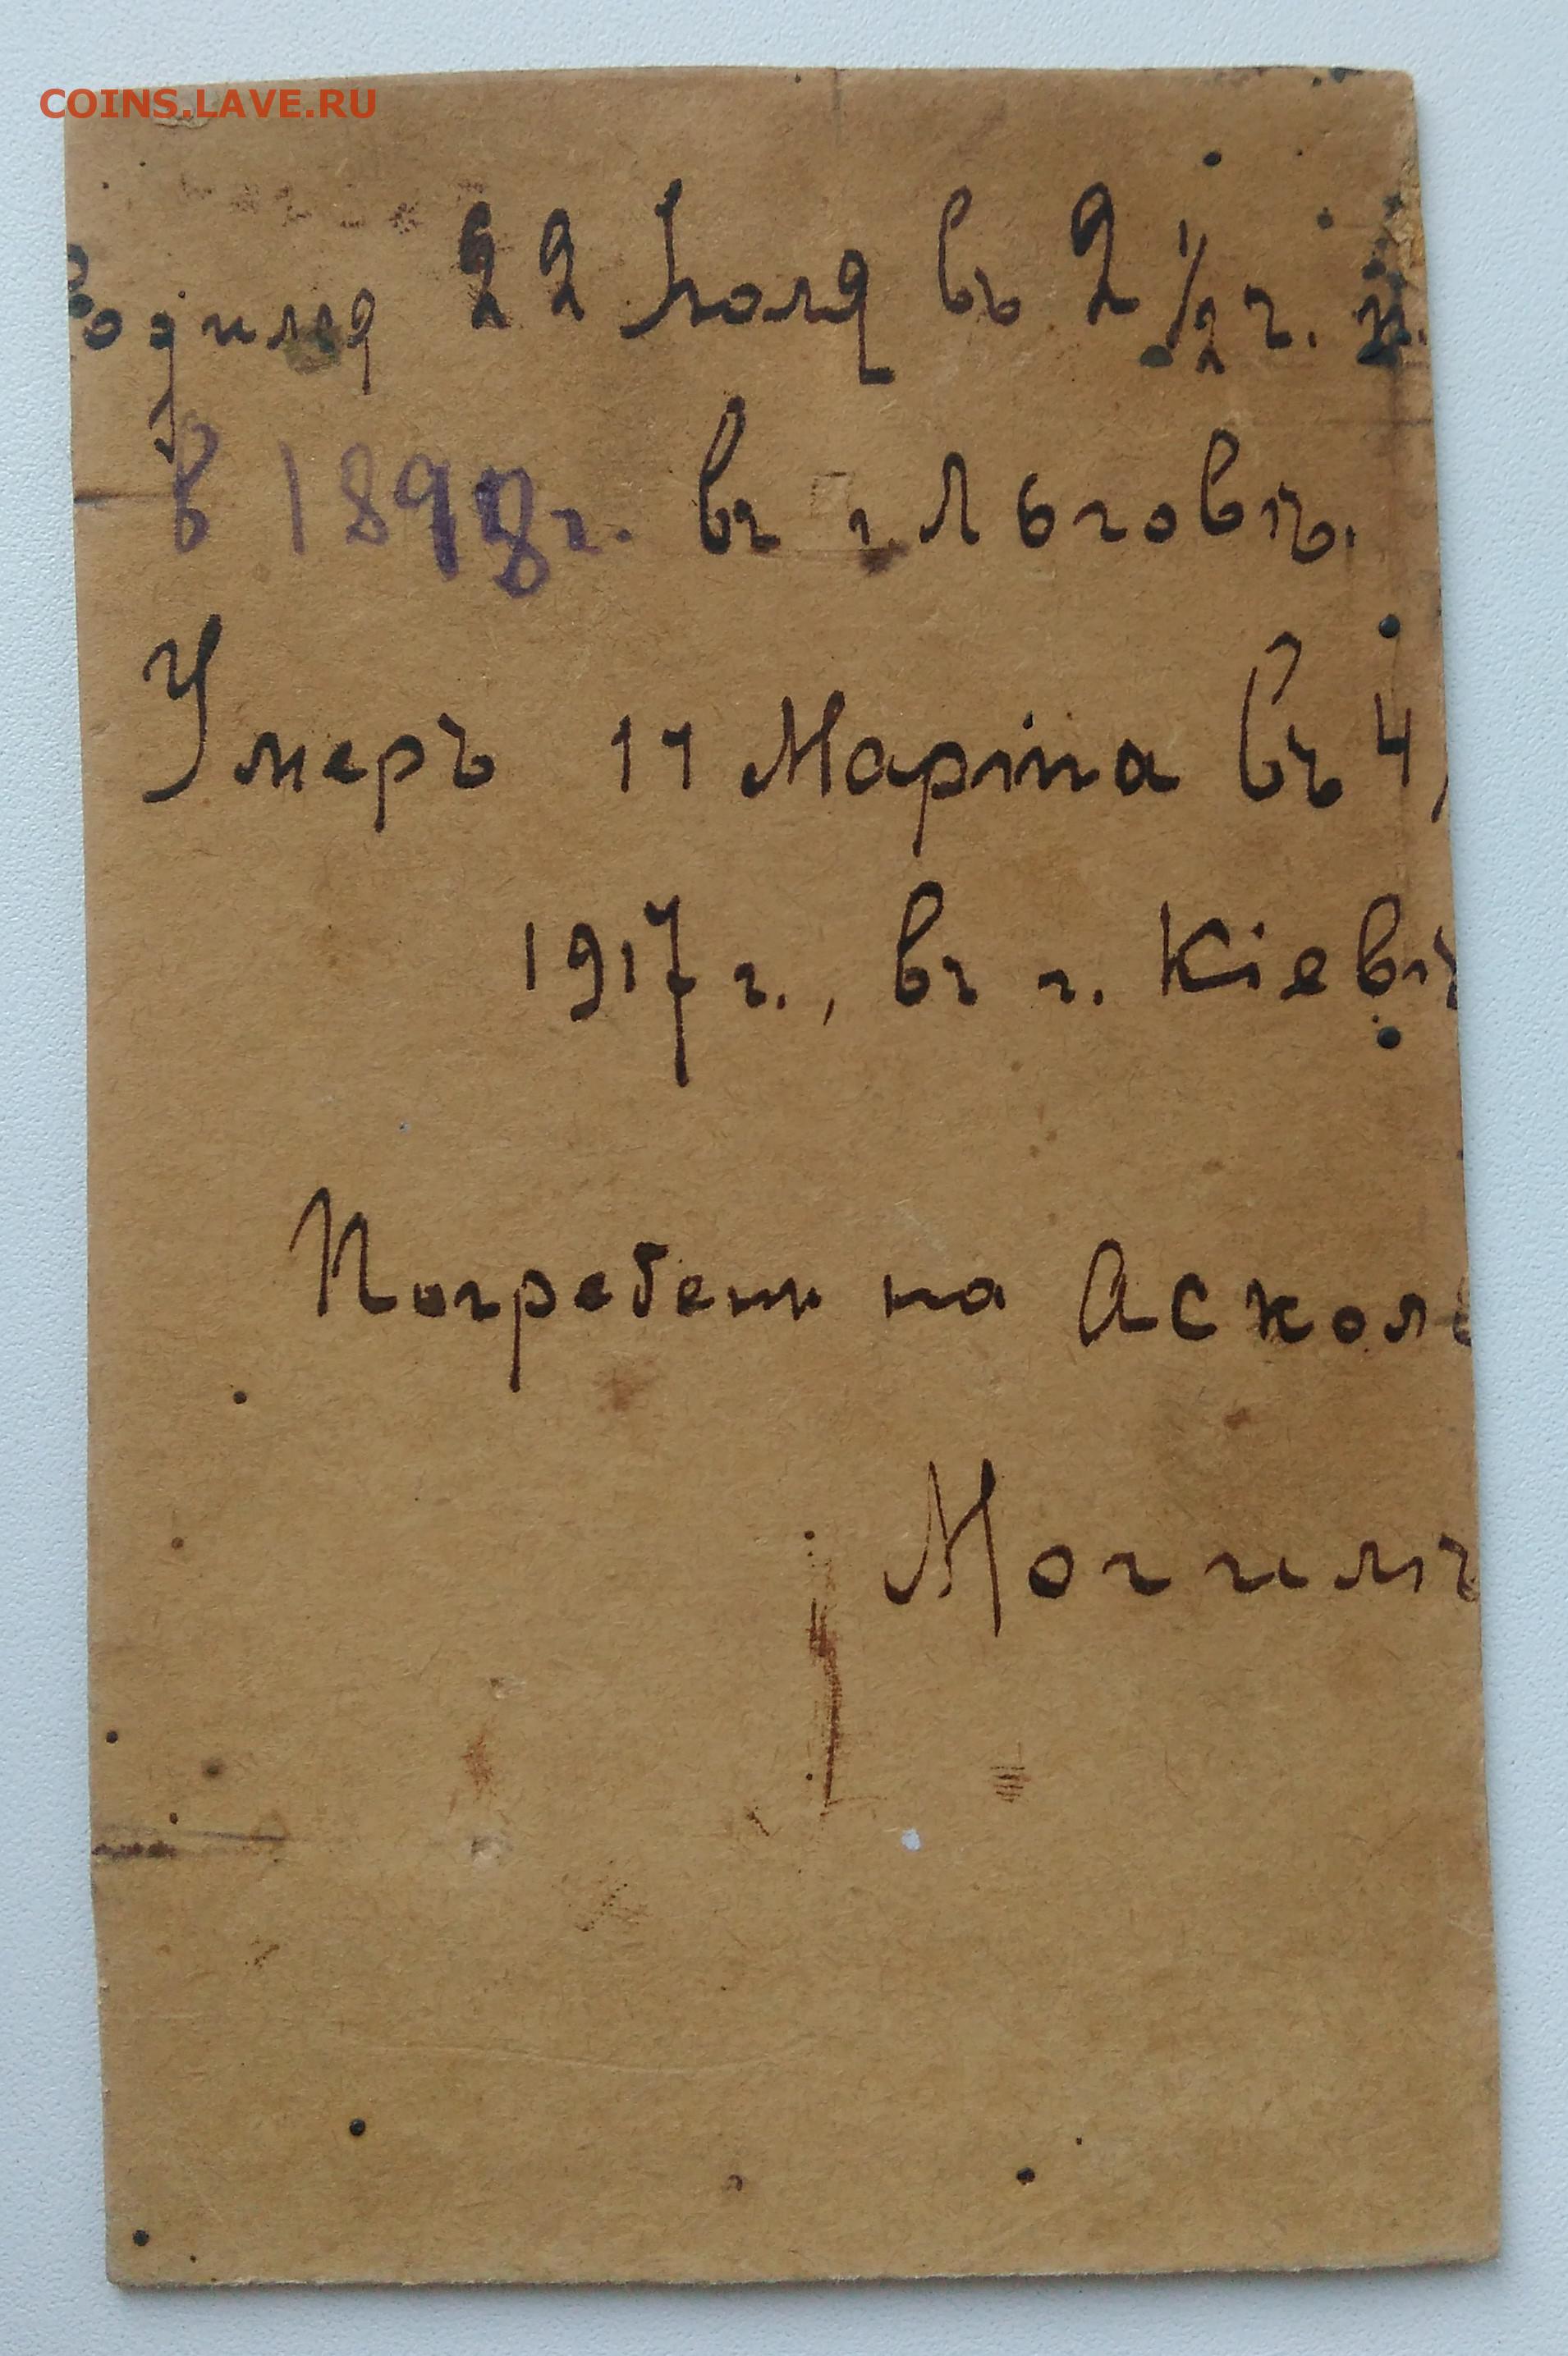 COINS.LAVE.RU
одился 22 Іюля въ 2 1/2 ч. н.
в 1898г. въ г. Льговѣ.
Умеръ 11 Марта въ 4
1917 г., въ г. Кіевѣ
Погребенъ на Аскол
Могилѣ